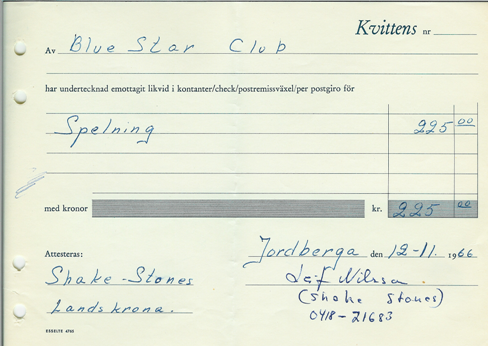 Kvittens nr
Av Blue Star Club
har undertecknad emottagit likvid i kontanter/check/postremissväxel/per postgiro för
Spelning 225 00
med kronor kr. 225 00
Jordberga den 12-11. 1966
Attesteras:
Shake-Stones Leif Nilsson.
(Shake Stones)
Landskrona. 0418-21683
ESSELTE 4765